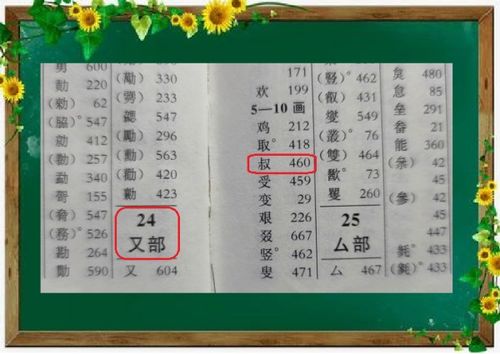 男 600
勣 220
(勑) 62
(脇)° 547
勍 412
(勌) 257
勐 340
哿 155
(勠) 547
(務)° 526
勘 264
勚 590
(勱) 330
(勥) 233
勰 547
(勵) 296
(勳) 563
(勸) 420
勷 423
24
又部
又 604
171
欢 199
5—10 画
鸡 212
取° 418
叔 460
受 459
变 29
艰 226
叕 667
竖° 462
叟 471
(豎)° 462
(叡) 431
燮 549
(叢)° 76
(雙) 464
歠° 73
矍 260
25
厶部
厶 467
炱 480
怠 85
垒 291
畚 21
能 360
(叅) 42
45
(參) 42
45
447
毵° 433
(毿)° 433